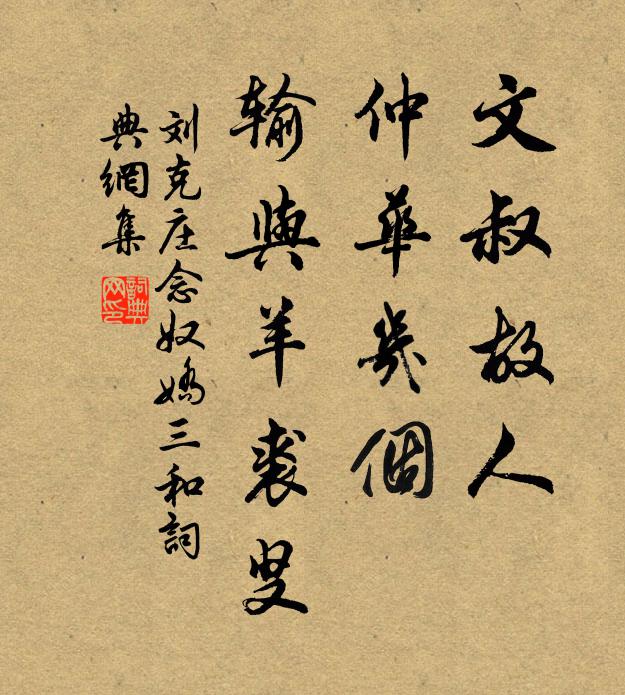 文叔故人
仲華幾個
輸與羊裘叟
刘克庄念奴嬌三和詞
典網集
詞典
网印